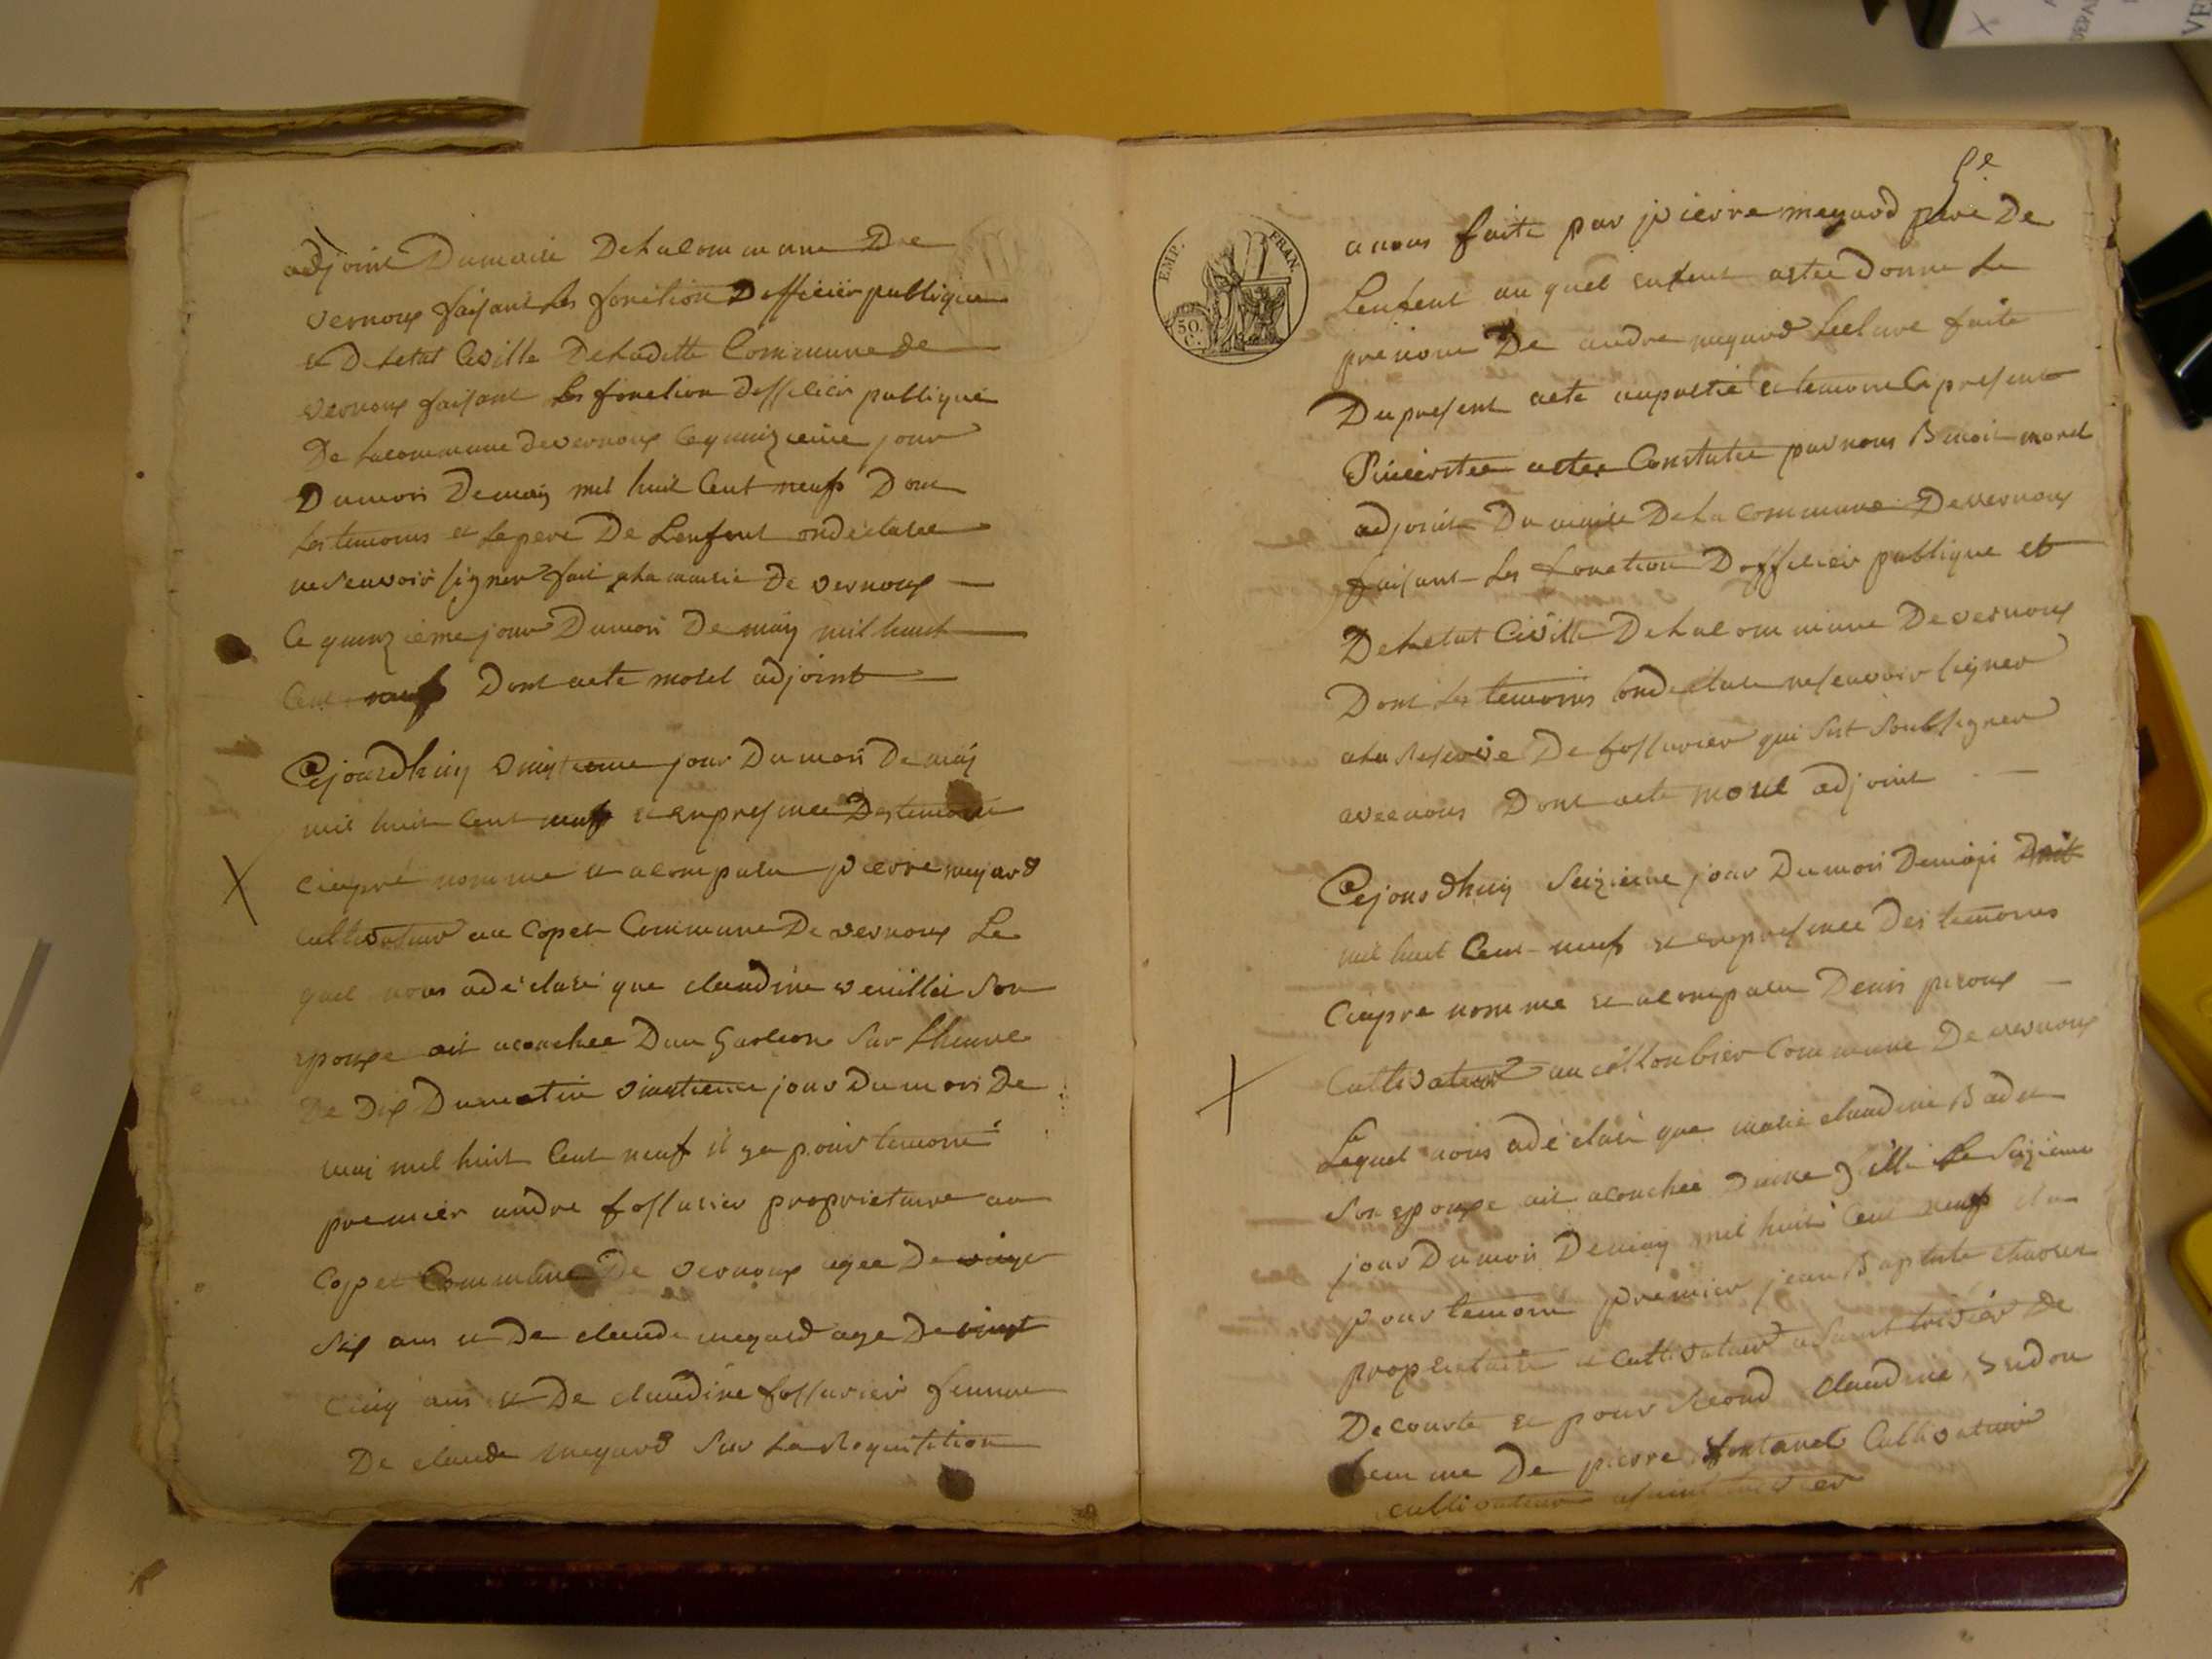 adjoint Dumaire Delalommune De
vernoux faisant les fonction Dofficiér publique
et Deletat Civille Deladitte Commune de
vernoux faisant les fonction dofficiér publique
De lacommune devernoux Cequinzieme jour
Dumois Demaÿ mil huit Cent neufs Dont
les temoins et lepere De Lenfent ondéclaree
nesavoir signer fait a la mairie De vernoux
Ce quinzieme jour Dumois De maÿ mil huit
Cent neufs Dont acte morel adjoint
Cejourdhuiÿ jour Dumois De maÿ
mil huit Cent neufs et enpresence Destemoin
ciapré nomme et acomparu pierre megard
Cultivateur au Copet Commune De vernoux Le
quel nous adéclaré que claudine veuillet Son
epouse ait acouchee Dun Garcon Sur Lheure
De Dix Dumatin jour Dumois De
mai mil huit Cent neuf il ya pour temoin
premiér andre fossurier proprietaire au
Copet Commune De vernoux agee De vingt
Six ans et De claude megard age De vingt
Cinq ans et De claudine fossurier femme
De claude megard Sur La Requisition
5e
EMP. FRAN.
50. C.
anous faite par pierre megard pere De
Lenfent au quel enfent astee Donne Le
prenom De andre megard Lecture faite
Du present acte aupartie et temoin Ce present
astee Constatee par nous Benoit morel
adjoint Du maire De La Commune De vernoux
faisant Les fonction Dofficier publique et
Deletat Civille Delalommune De vernoux
Dont Les temoins ondéclare nesavoir signer
ala Reserve De fossurier qui Sest Soubsigner
avecnous Dont acte morel adjoint
Cejourdhuiÿ Seizieme jour Dumois Demaÿ
mil huit Cent neufs et enpresence Des temoins
Ciapre nomme et acomparu Denis peroux
Cultivateur au collonbier Commune De vernoux
Lequel nous adéclaré que marie claudine Badet
Son epouse ait acouchee Dune fille Le Seizieme
jour Dumois Demaÿ mil huit Cent neufs
pour temoin premier jean Baptiste
proprietaire et Cultivateur a Saint trivier De
Decourte et pour Second Claudine
femme De pierre fontanet Cultivateur
cultivateur asaint trivier